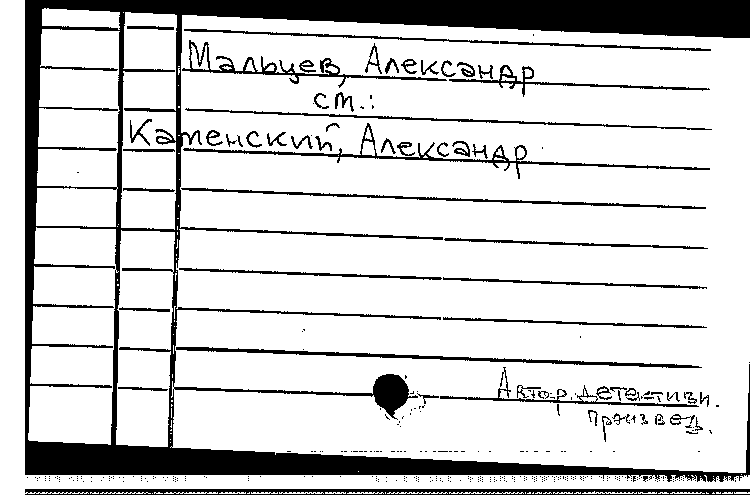 Мальцев, Александр
см.:
Каменский, Александр
Автор детективн.
произвед.